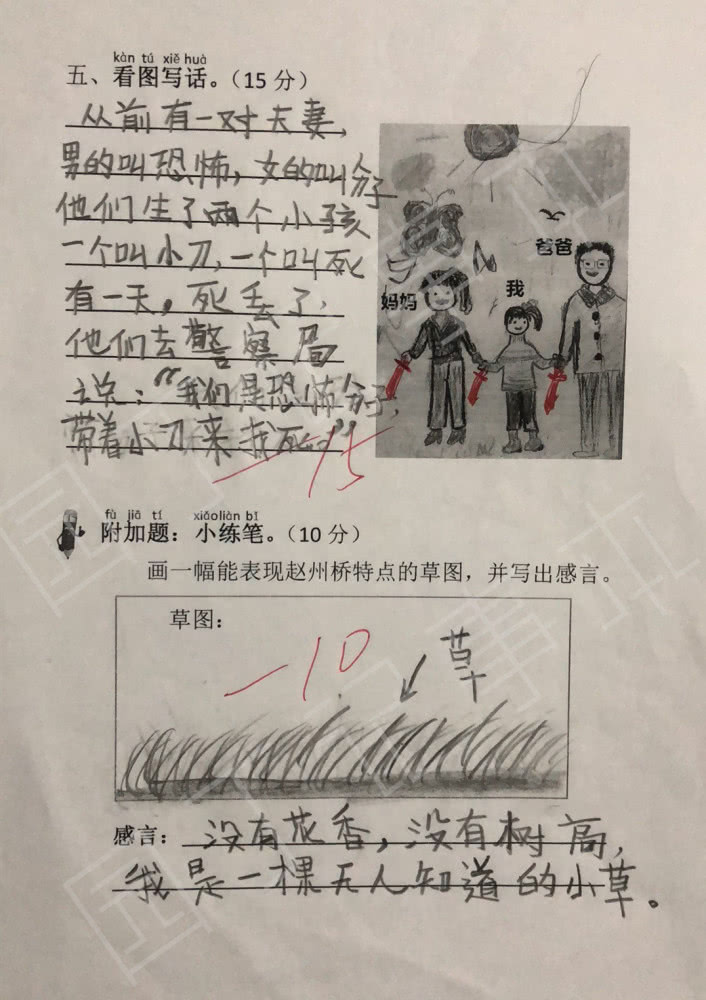 kàn tú xiě huà
五、看图写话。（15 分）
从前有一对夫妻，
男的叫恐怖，女的叫分子
他们生了两个小孩
一个叫小刀，一个叫死
有一天，死丢了，
他们去警察局
说：“我们是恐怖分子，
带着小刀来找死。”
-15
爸爸
我
妈妈
fù jiā tí xiǎoliàn bǐ
附加题：小练笔。（10 分）
画一幅能表现赵州桥特点的草图，并写出感言。
草图：
-10
草
感言：没有花香，没有树高，
我是一棵无人知道的小草。